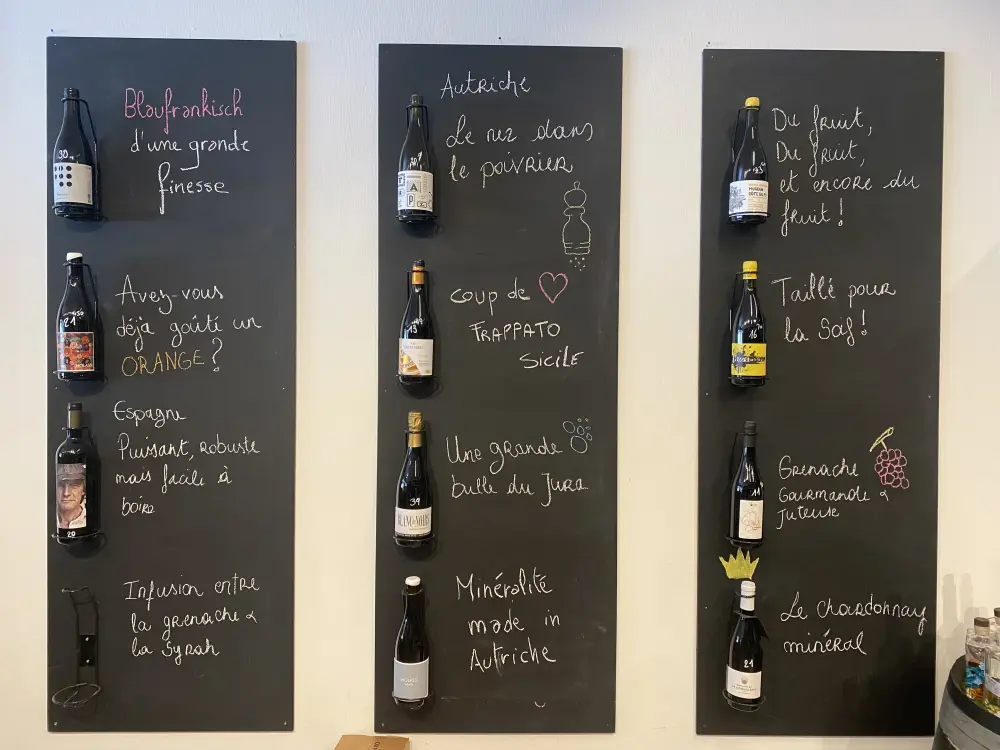 Blaufrankisch
d'une grande
finesse
30
Avez-vous
déjà goûté un
ORANGE?
21
Espagne
Puissant, robuste
mais facile à
boire
20
Infusion entre
la grenache &
la Syrah
Autriche
Le nez dans
le poivrier
A
P
coup de
FRAPPATO
SICILE
13
Une grande
bulle du Jura
34
BLANC NOIRS
Minéralité
made in
Autriche
Du fruit,
Du fruit,
et encore du
fruit!
Taillé pour
la Soif!
16
Grenache
Gourmande &
Juteuse
11
Le chardonnay
minéral
21